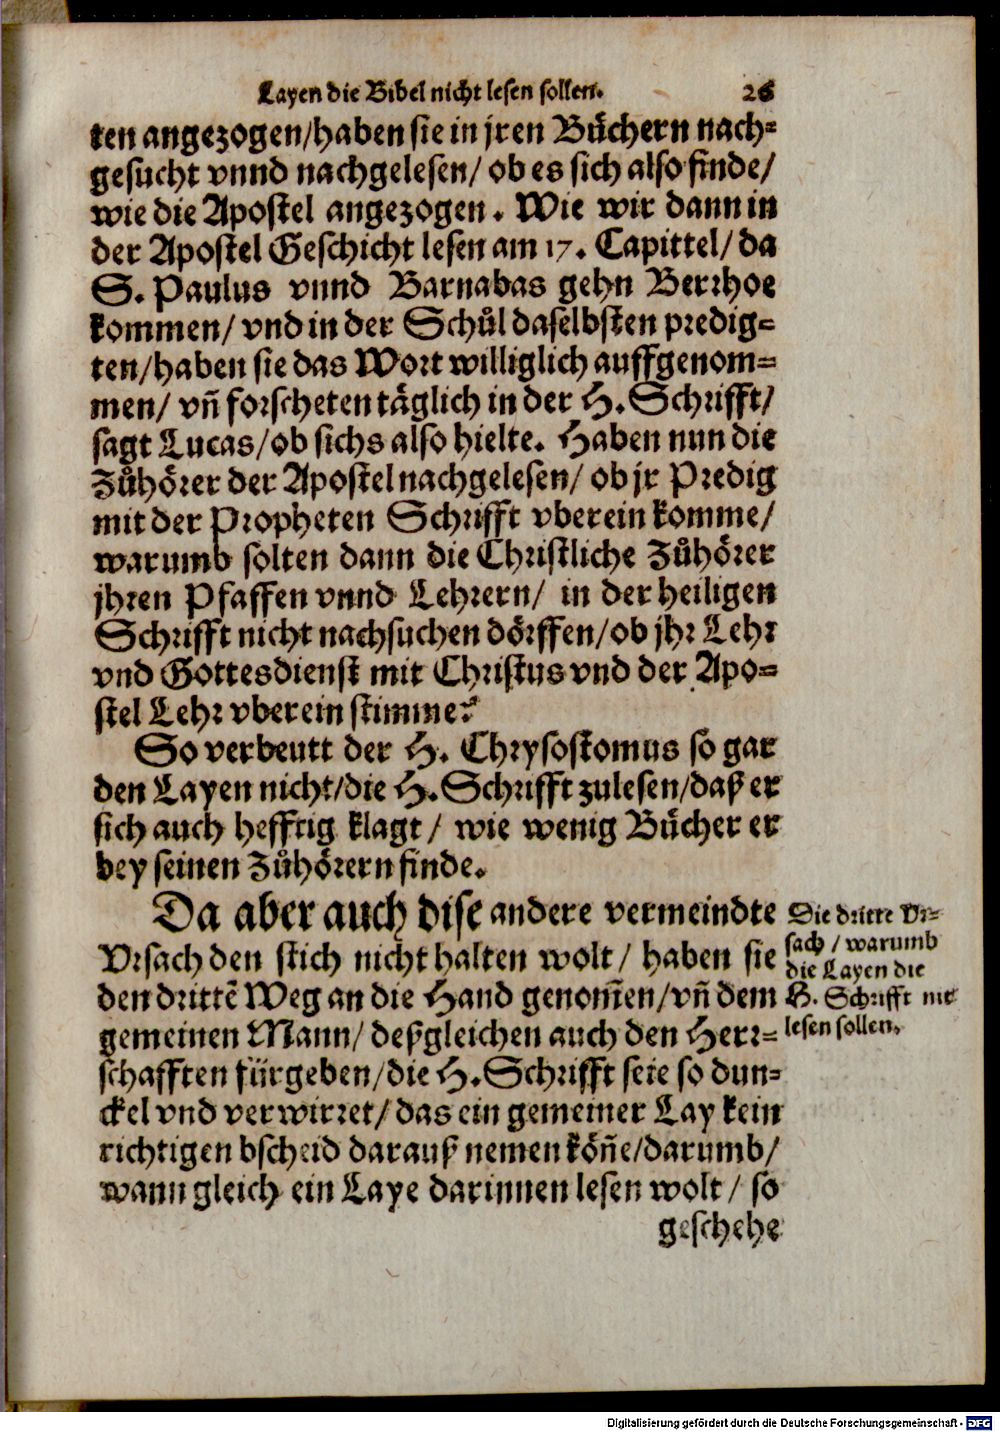 Layen die Bibel nicht lesen sollen. 26
ten angezogen/haben sie in jren Bůchern nach-
gesucht vnnd nachgelesen/ ob es sich also finde/
wie die Apostel angezogen. Wie wir dann in
der Apostel Geschicht lesen am 17. Capittel/ da
S. Paulus vnnd Barnabas gehn Berrhoe
kommen/ vnd in der Schůl daselbsten predig-
ten/haben sie das Wort williglich auffgenom-
men/ vñ forscheten täglich in der H. Schrifft/
sagt Lucas/ob sichs also hielte. Haben nun die
Zůhörer der Apostel nachgelesen/ ob jr Predig
mit der Propheten Schrifft vberein komme/
warumb solten dann die Christliche Zůhörer
jhren Pfaffen vnnd Lehrern/ in der heiligen
Schrifft nicht nachsuchen dörffen/ob jhr Lehr
vnd Gottesdienst mit Christus vnd der Apo-
stel Lehr vberein stimme?
So verbeutt der H. Chrysostomus so gar
den Layen nicht/die H. Schrifft zulesen/daß er
sich auch hefftig klagt/ wie wenig Bücher er
bey seinen Zůhörern finde.
Da aber auch dise andere vermeindte
Vrsach den stich nicht halten wolt/ haben sie
den drittē Weg an die Hand genom̃en/vñ dem
gemeinen Mann/ deßgleichen auch den Herr-
schafften fürgeben/die H. Schrifft seie so dun-
ckel vnd verwirret/das ein gemeiner Lay kein
richtigen bscheid darauß nemen köñe/darumb/
wann gleich ein Laye darinnen lesen wolt/ so
geschehe
Die dritte Vr-
sach/warumb
die Layen die
H. Schrifft nit
lesen sollen.
Digitalisierung gefördert durch die Deutsche Forschungsgemeinschaft - DFG